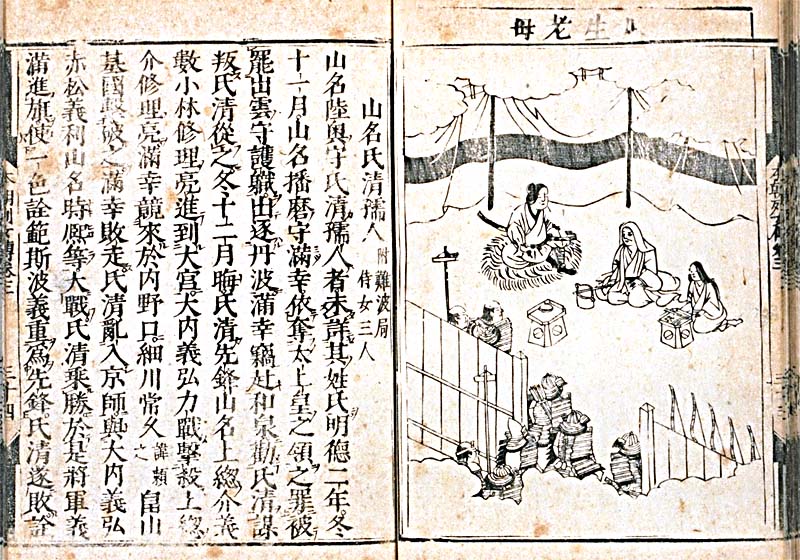 生老母
山名氏清孺人 附難波局
侍女三人
山名陸奥守氏清孺人者未詳其姓氏明德二年冬
十一月山名播磨守滿幸依奪太上皇之領之罪被
罷出雲守護職出逐丹波滿幸竊赴和泉勸氏清謀
叛氏清從之冬十二月晦氏清先鋒山名上總介義
數小林修理亮進到大宮大内義弘力戰擊殺上總
介修理亮滿幸競來於内野口細川常久 諱頼之 畠山
基國擊破之滿幸敗走氏清亂入京師與大内義弘
赤松義利山名時熈等大戰氏清乘勝於是將軍義
滿進旗使一色詮範斯波義重為先鋒氏清遂敗詮